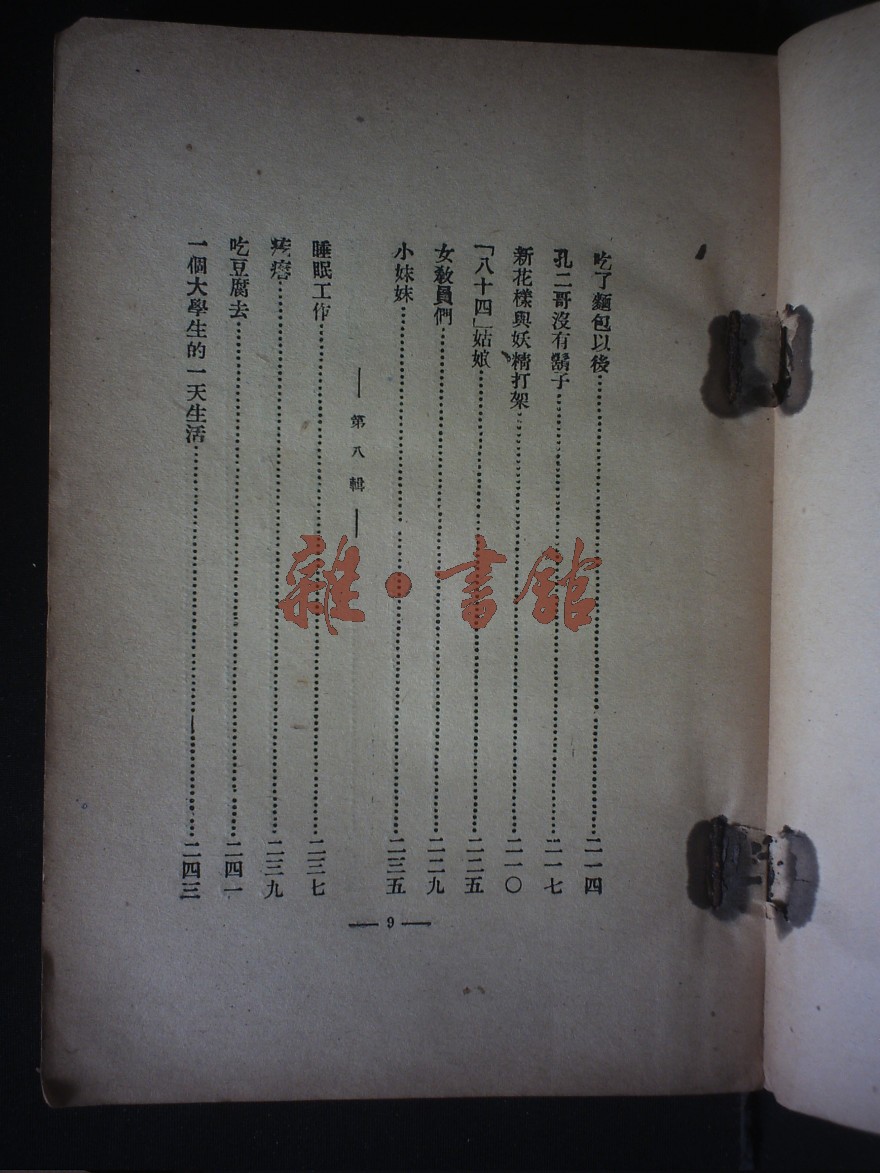 吃了麵包以後……二一四
孔二哥沒有鬍子……二一七
新花樣與妖精打架……二一〇
「八十四」姑娘……二二五
女教員們……二二九
小妹妹……二三五
— 第八輯 —
睡眠工作……二三七
疙瘩……二三九
吃豆腐去……二四一
一個大學生的一天生活……二四三
— 9 —
雜·書館